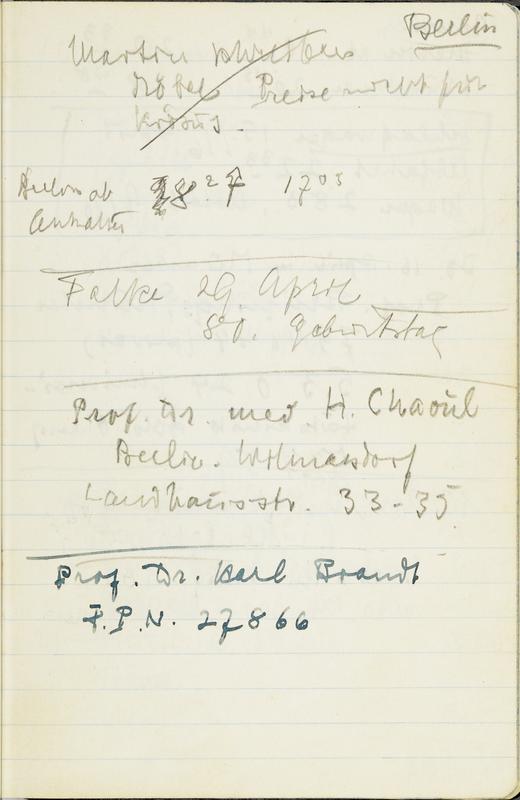 Berlin
Martin
Möbel Preise nicht für
Berlin ab 27 17 03
Anhalter
Falke 29. April
80. Geburtstag
Prof. Dr. med H. Chaoul
Berlin. Wilmersdorf
Landhausstr. 33-35
Prof. Dr. Karl Brandt
F.P.N. 27866